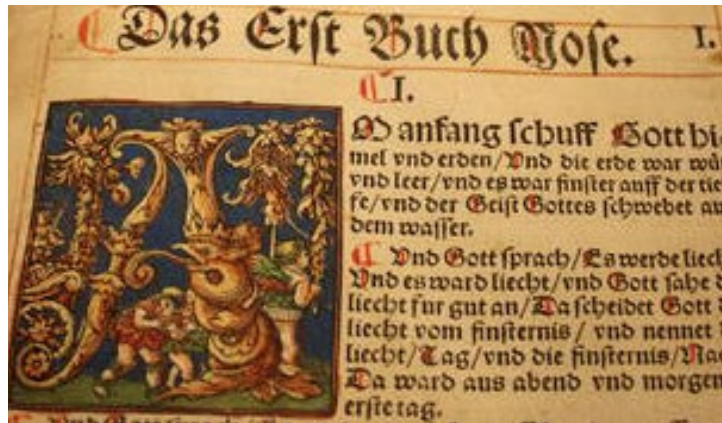 Das Erst Buch Mose. I.
I.
AM anfang schuff Gott
mel vnd erden/Vnd die erde war
vnd leer/vnd es war finster auff der tie
fe/vnd der Geist Gottes schwebet
dem wasser.
Vnd Gott sprach/Es werde liech
Vnd es ward liecht/vnd Gott sahe
liecht fur gut an/Da scheidet Gott
liecht vom finsternis/vnd nennet
liecht/Tag/vnd die finsternis/
Da ward aus abend vnd morgen
erste tag.